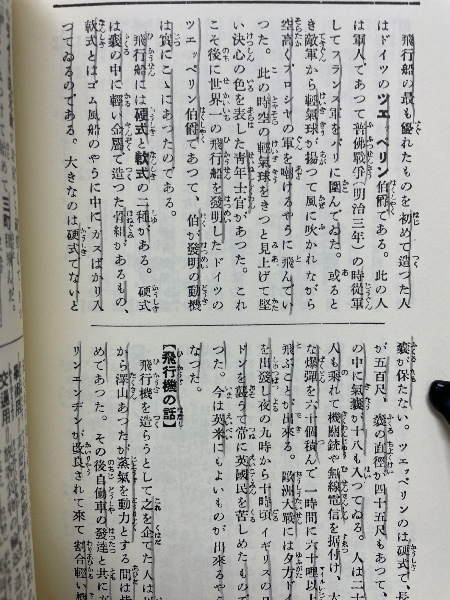 飛行船の最も優れたものを初めて造つた人
はドイツのツエッペリン伯爵である。此の人
は軍人であつて普佛戰爭(明治三年)の時從軍
してフランス軍をパリに圍んでゐた。或ると
き敵軍から輕氣球が揚つて風に吹かれながら
空高くプロシヤの軍を嘲けるやうに飛んでい
つた。此の時空の輕氣球をきつと見上げて堅
い決心の色を表した青年士官があつた。これ
こそ後に世界一の飛行船を發明したドイツの
ツエッペリン伯爵であつて、伯が發明の動機
は實にこゝにあつたのである。
飛行船には硬式と軟式の二種がある。硬式
は嚢の中に輕い金屬で造つた骨組があるもの、
軟式とはゴム風船のやうに中にガスばかり入
つてゐるのである。大きなのは硬式でないと
嚢が保たない。ツエッペリンのは硬式で長
が五百尺、嚢の直徑が四十五尺もあつて、
の中に氣嚢が十八も入つてゐる。人は二十
人も乘れて機關銃や無線電信を据付け、大
な爆彈を六十個積んで一時間に六十哩以
飛ぶことが出來る。歐洲大戰には夕方ド
を出發し夜の九時から十時頃イギリスのロ
ドンを襲うて常に英國民を苦しめたもので
つた。今は英米にもよいものが出來るや
なつた。
【飛行機の話】
飛行機を造らうとして之を企てた人は
から澤山あつたが蒸氣を動力とする間は
めであつた。その後自働車の發達と共に
リンエンヂンが改良されて來て割合輕い